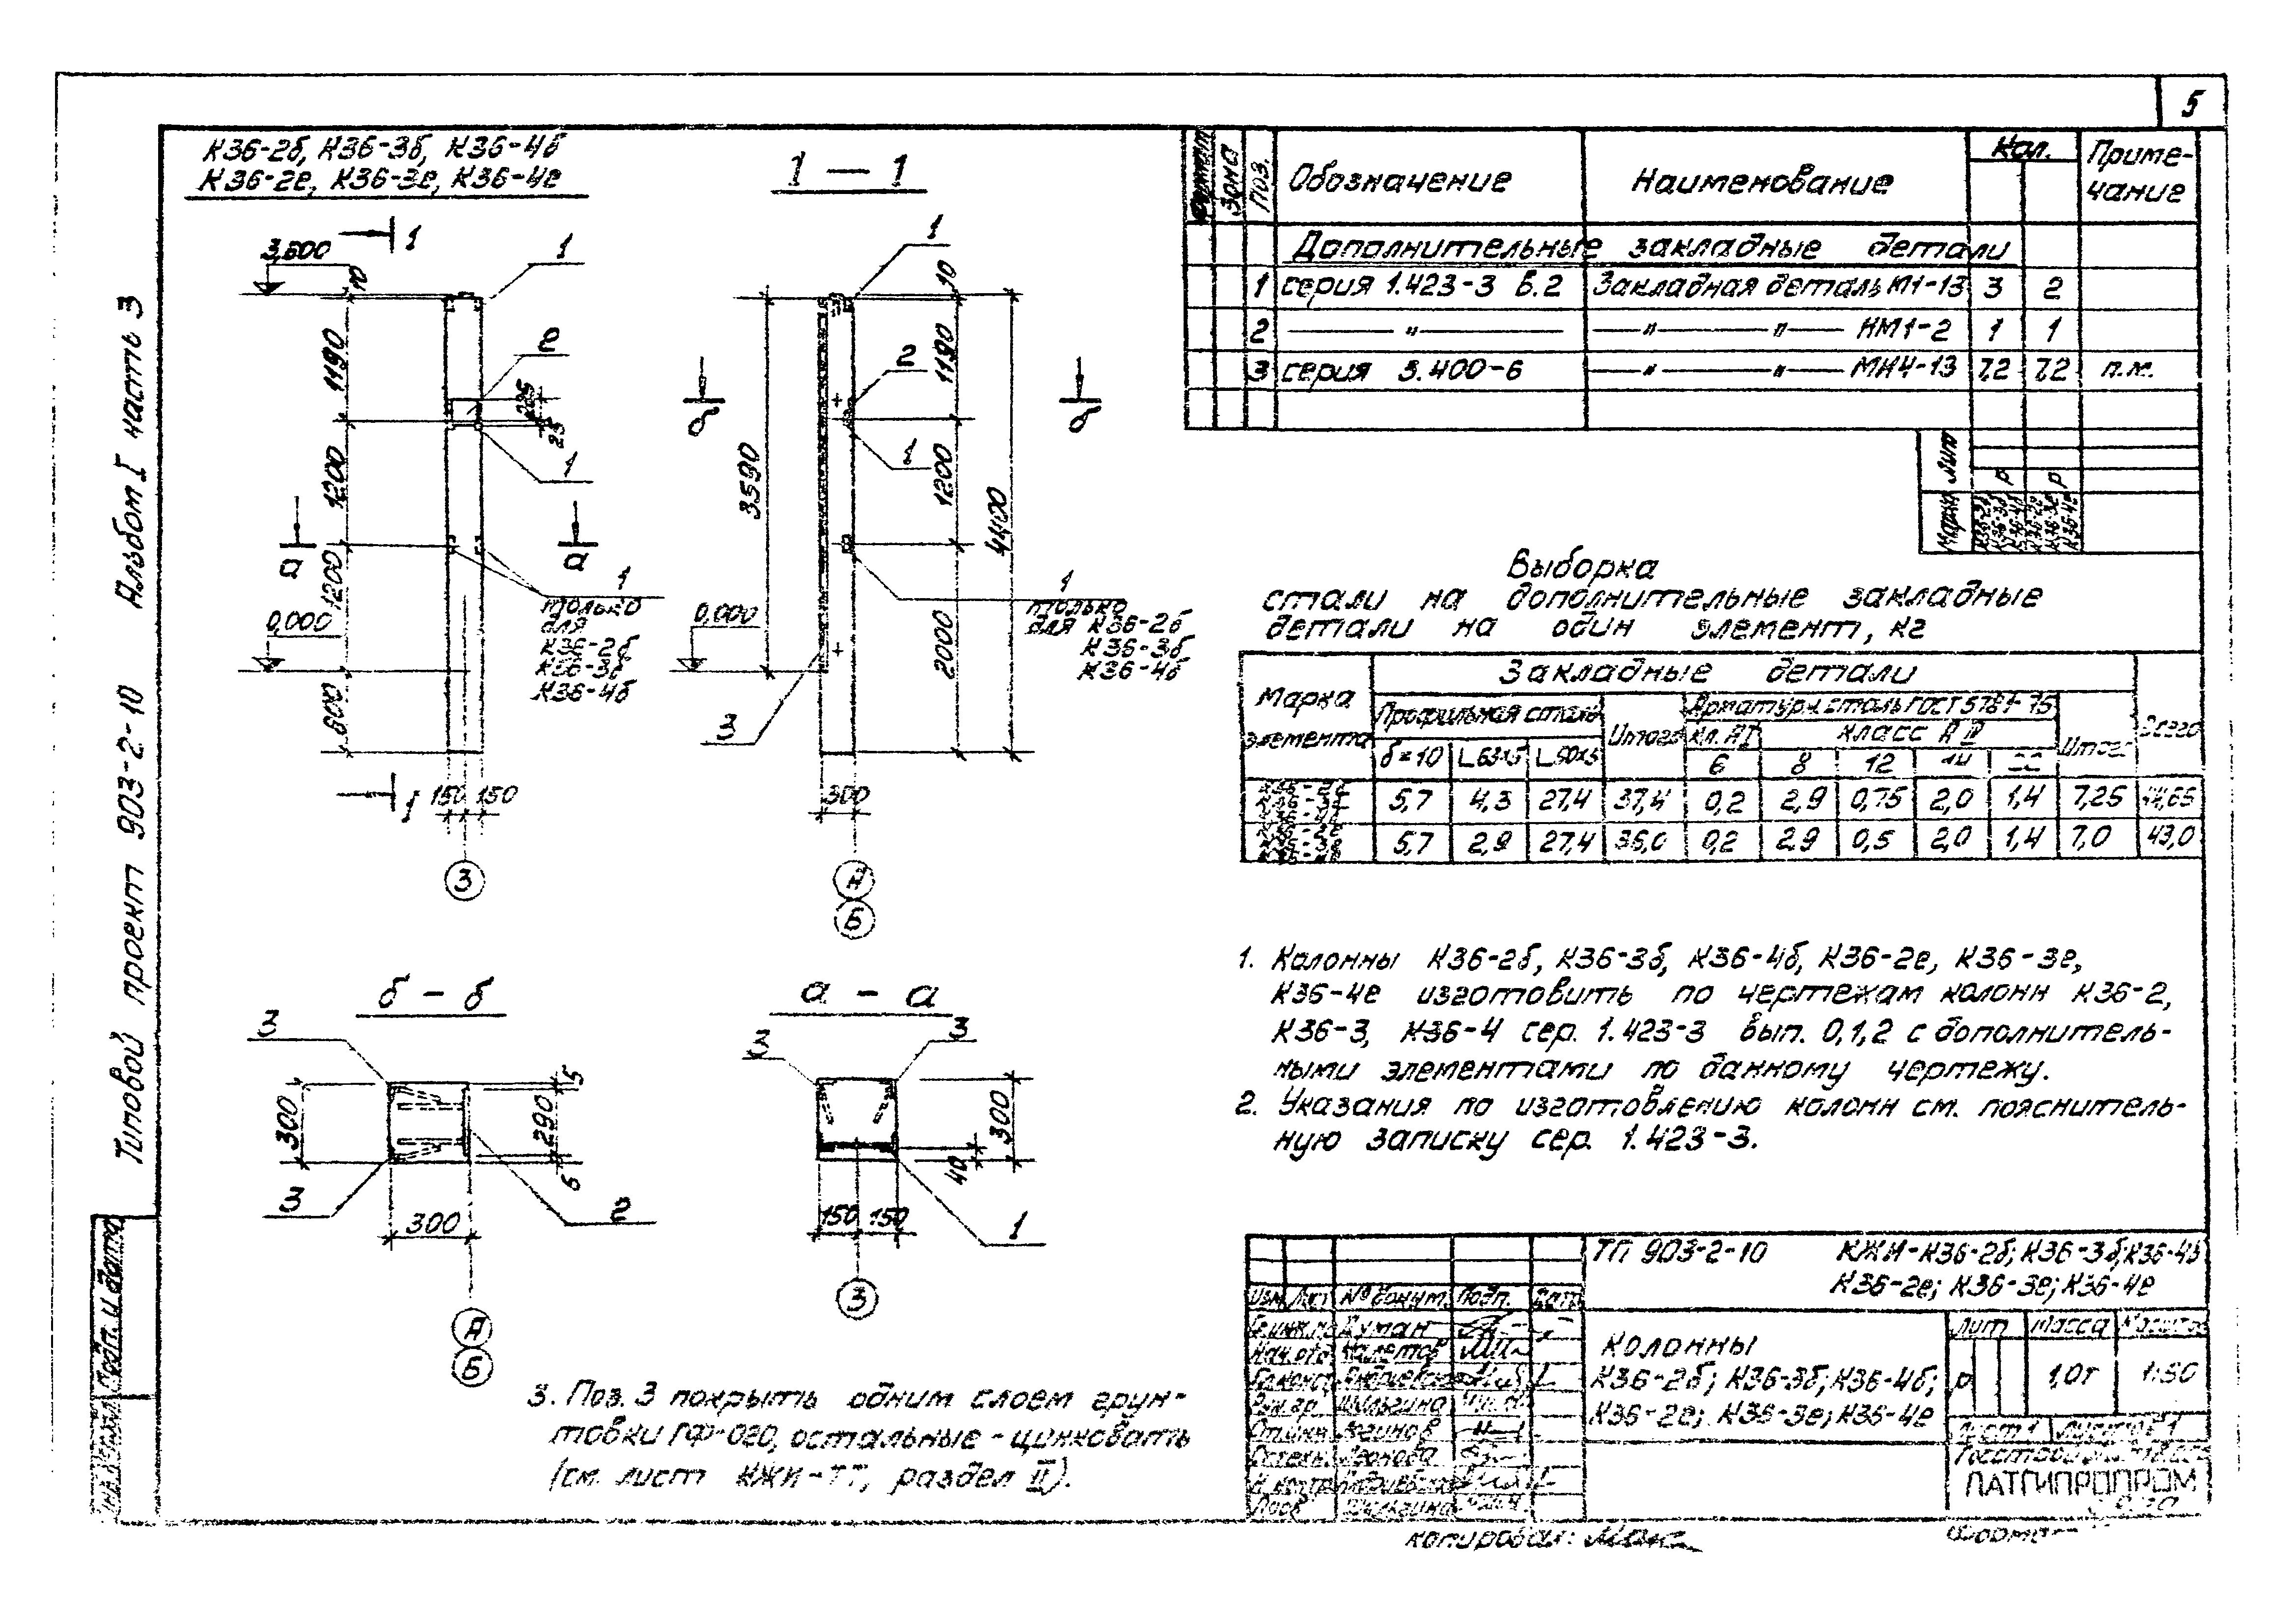 5
К36-2б, К36-3б, К36-4б
К36-2е, К36-3е, К36-4е
1 — 1
Типовой проект 903-2-10 Альбом I часть 3
Подп. и дата
1
3,600
10
1
1190
2
285
25
1
1200
а
а
1200
1
только
для
К36-2б
К36-3б
К36-4б
0,000
600
1
150 150
3
1
10
1190
2
б
б
1
3590
1200
4400
1
только
для К36-2б
К36-3б
К36-4б
0,000
2000
3
300
А
Б
б - б
3
300
5
290
5
3
2
300
А
Б
а - а
3
3
300
40
150 150
1
3
Формат Зона Поз. Обозначение Наименование Кол. Приме-
чание
Дополнительные закладные детали
1 серия 1.423-3 в.2 Закладная деталь М1-13 3 2
2 — " — — " — " — НМ1-2 1 1
3 серия 3.400-6 — " — " — МН4-13 7,2 7,2 п.м.
Лит Р Р
Марка К36-2б К36-3б К36-4б К36-2е К36-3е К36-4е
Выборка
стали на дополнительные закладные
детали на один элемент, кг
Марка
элемента
Закладные детали
Всего
Профильная сталь Итого Арматурн. сталь ГОСТ 5781-75 Итого
кл. АI класс АIII
δ=10 L63×5 L50×5 6 8 12 14 22
5,7 4,3 27,4 37,4 0,2 2,9 0,75 2,0 1,4 7,25 44,65
5,7 2,9 27,4 36,0 0,2 2,9 0,5 2,0 1,4 7,0 43,0
1. Колонны К36-2б, К36-3б, К36-4б, К36-2е, К36-3е,
К36-4е изготовить по чертежам колонн К36-2,
К36-3, К36-4 сер. 1.423-3 вып. 0,1,2 с дополнитель-
ными элементами по данному чертежу.
2. Указания по изготовлению колонн см. пояснитель-
ную записку сер. 1.423-3.
3. Поз. 3 покрыть одним слоем грун-
товки ГФ-020, остальные - цинковать
(см. лист КЖИ-ТТ, раздел II).
ТП 903-2-10 КЖИ-К36-2б; К36-3б; К36-4б
К36-2е; К36-3е; К36-4е
Изм. Лист № докум. Подп. Дата
Гл.инж.пр. Думан
Нач.отд.
Рук.гр. Шульгина
Н.контр.
Колонны
К36-2б; К36-3б; К36-4б;
К36-2е; К36-3е; К36-4е
Лит Масса Масштаб
Р 1,0т 1:50
Лист 1 Листов 1
ЛАТГИПРОПРОМ
Копировал:
Формат